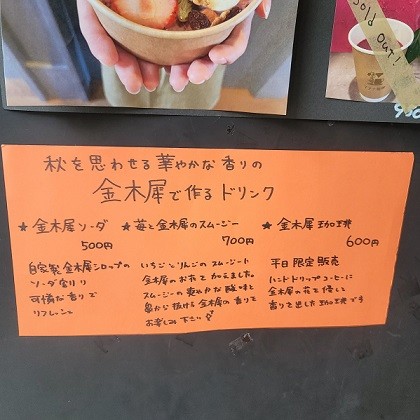 Sold Out!
秋を思わせる華やかな香りの
金木犀で作るドリンク
★ 金木犀ソーダ
500円
自家製金木犀シロップの
ソーダ割り
可憐な香りで
リフレッシュ
★ 苺と金木犀のスムージー
700円
いちごとりんごのスムージーに
金木犀のお花を加えました。
スムージーの爽やかな酸味と
鼻から抜ける金木犀の香りを
お楽しみ下さい
★ 金木犀珈琲
600円
平日限定販売
ハンドドリップコーヒーに
金木犀の花を浸して
香りを出した珈琲です